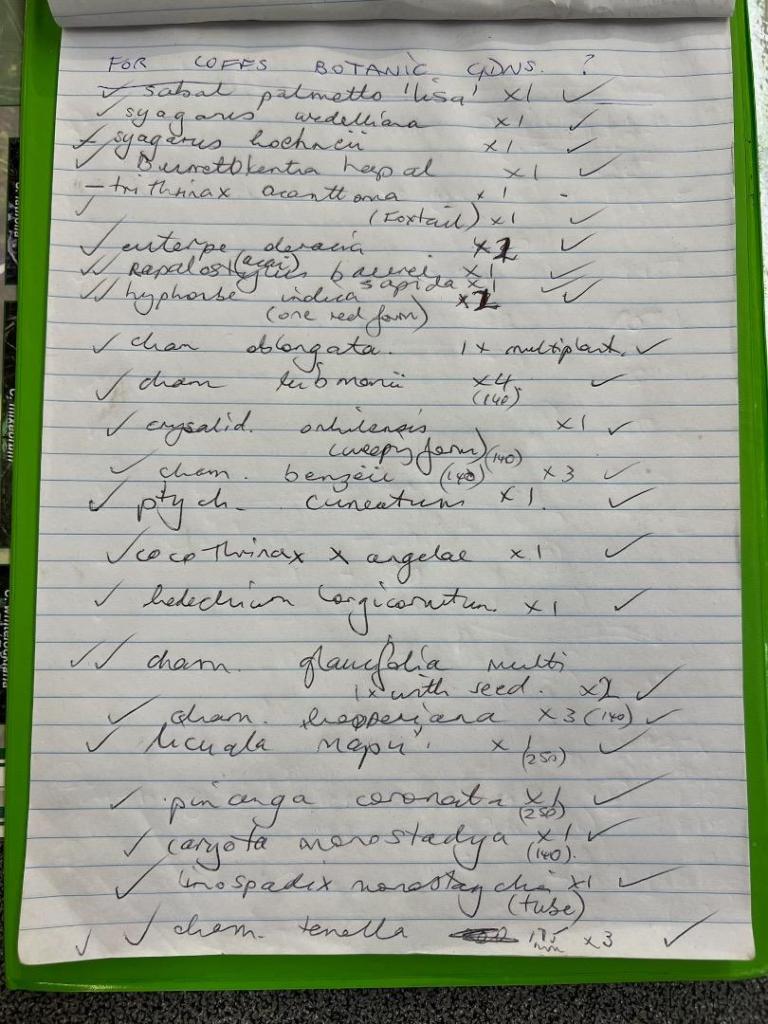 FOR COFFS BOTANIC GDNS. ?
✓ sabal palmetto 'lisa' x1 ✓
✓ syagarus wedelliana x1 ✓
✓ syagarus x1 ✓
✓ Burrettokentia hapal x1 ✓
- trithrinax x1 -
✓ (Foxtail) x1 ✓
✓ euterpe x2 ✓
(acai)
✓✓ baueri x1 ✓
sapida x1 ✓
✓✓ hyphorbe indica x2 ✓
(one red form)
✓ cham oblongata. 1x multiplant. ✓
✓ cham x4 ✓
(140)
✓ crysalid. x1 ✓
(weepy form) (140)
✓ cham. benzeii (140) x3 ✓
✓ ptych. cuneatum x1. ✓
✓ cocothrinax x angelae x1 ✓
✓ hedechium x1 ✓
✓✓ cham. glaucifolia multi
1x with seed. x2 ✓
✓ cham. hooperiana x3 (140) ✓
✓ licuala mapu x1 ✓
(250)
✓ pinanga coronata x1 ✓
(250)
✓ caryota monostachya x1 ✓
(140).
✓ linospadix monostaychia x1 ✓
(tube)
✓ ✓ cham. tenella 175 mm x3 ✓